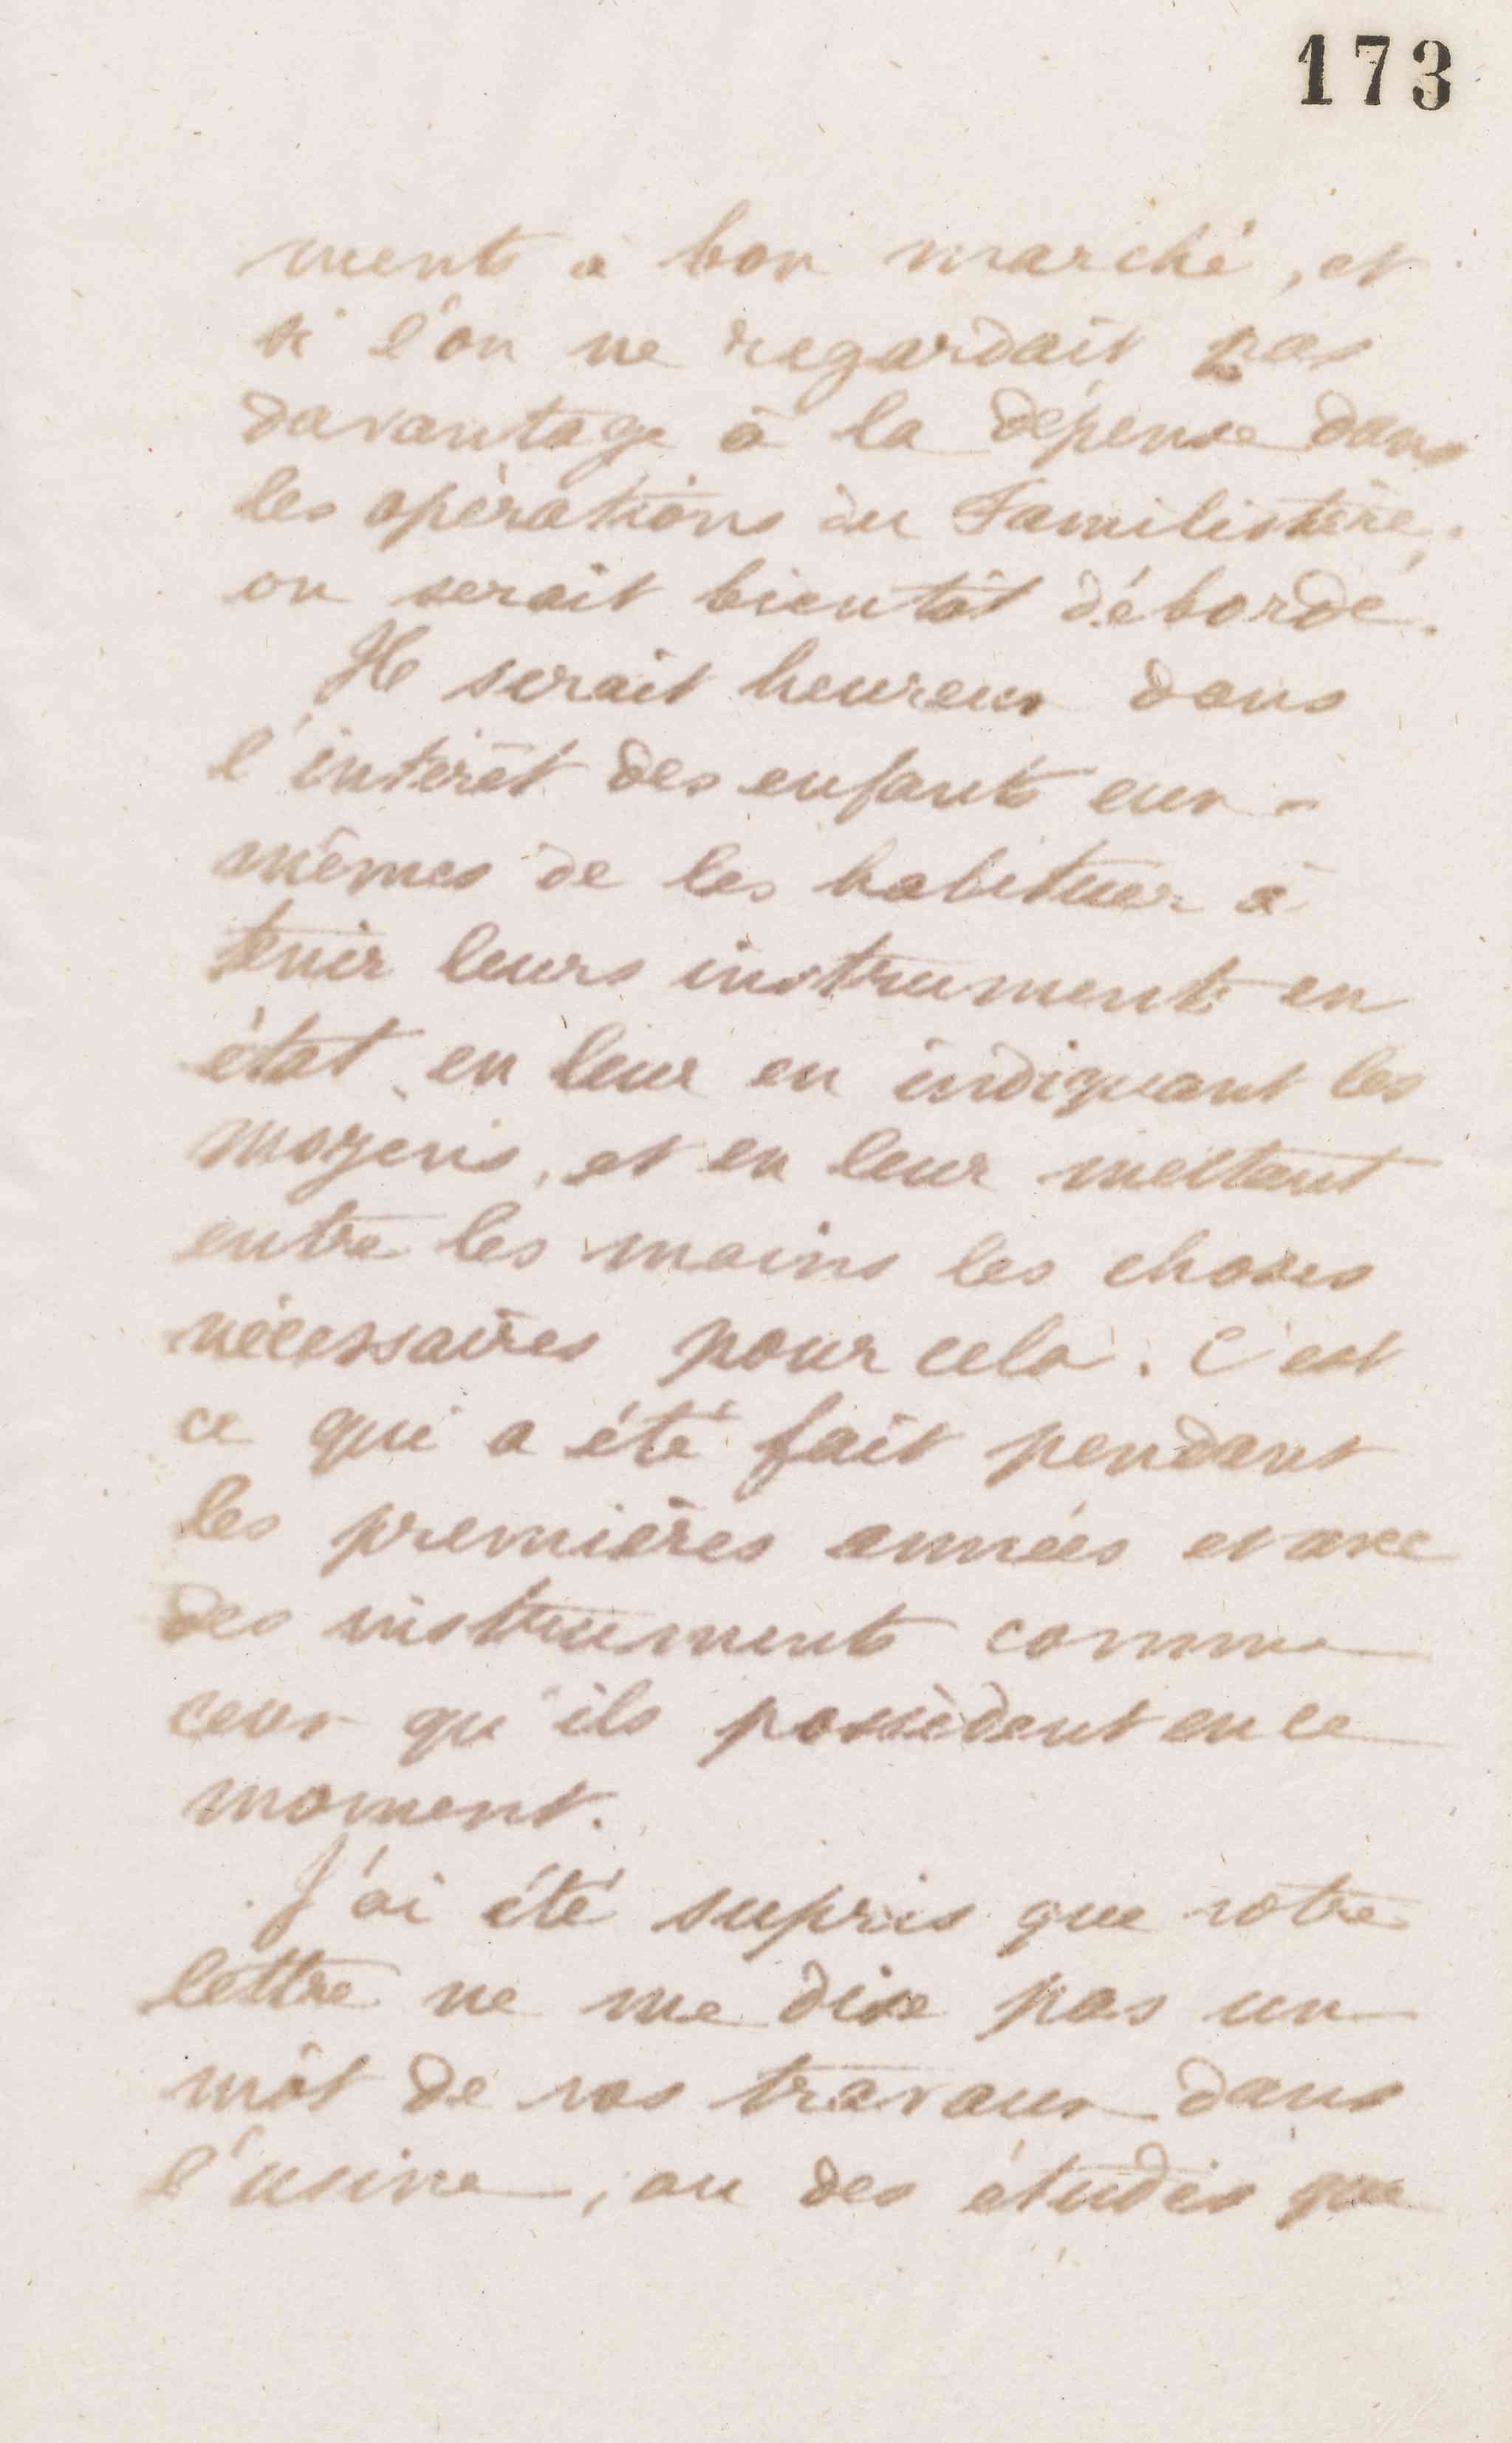 173
ments à bon marché, et
si l'on ne regardait pas
davantage à la dépense dans
les opérations du Familistère,
on serait bientôt débordé.
Il serait heureux dans
l'intérêt des enfants eux-
mêmes de les habituer à
tenir leurs instruments en
état en leur en indiquant les
moyens, et en leur mettant
entre les mains les choses
nécessaires pour cela. C'est
ce qui a été fait pendant
les premières années et avec
des instruments comme
ceux qu'ils possèdent en ce
moment.
J'ai été supris que votre
lettre ne me dise pas un
mot de vos travaux dans
l'usine, ou des études que